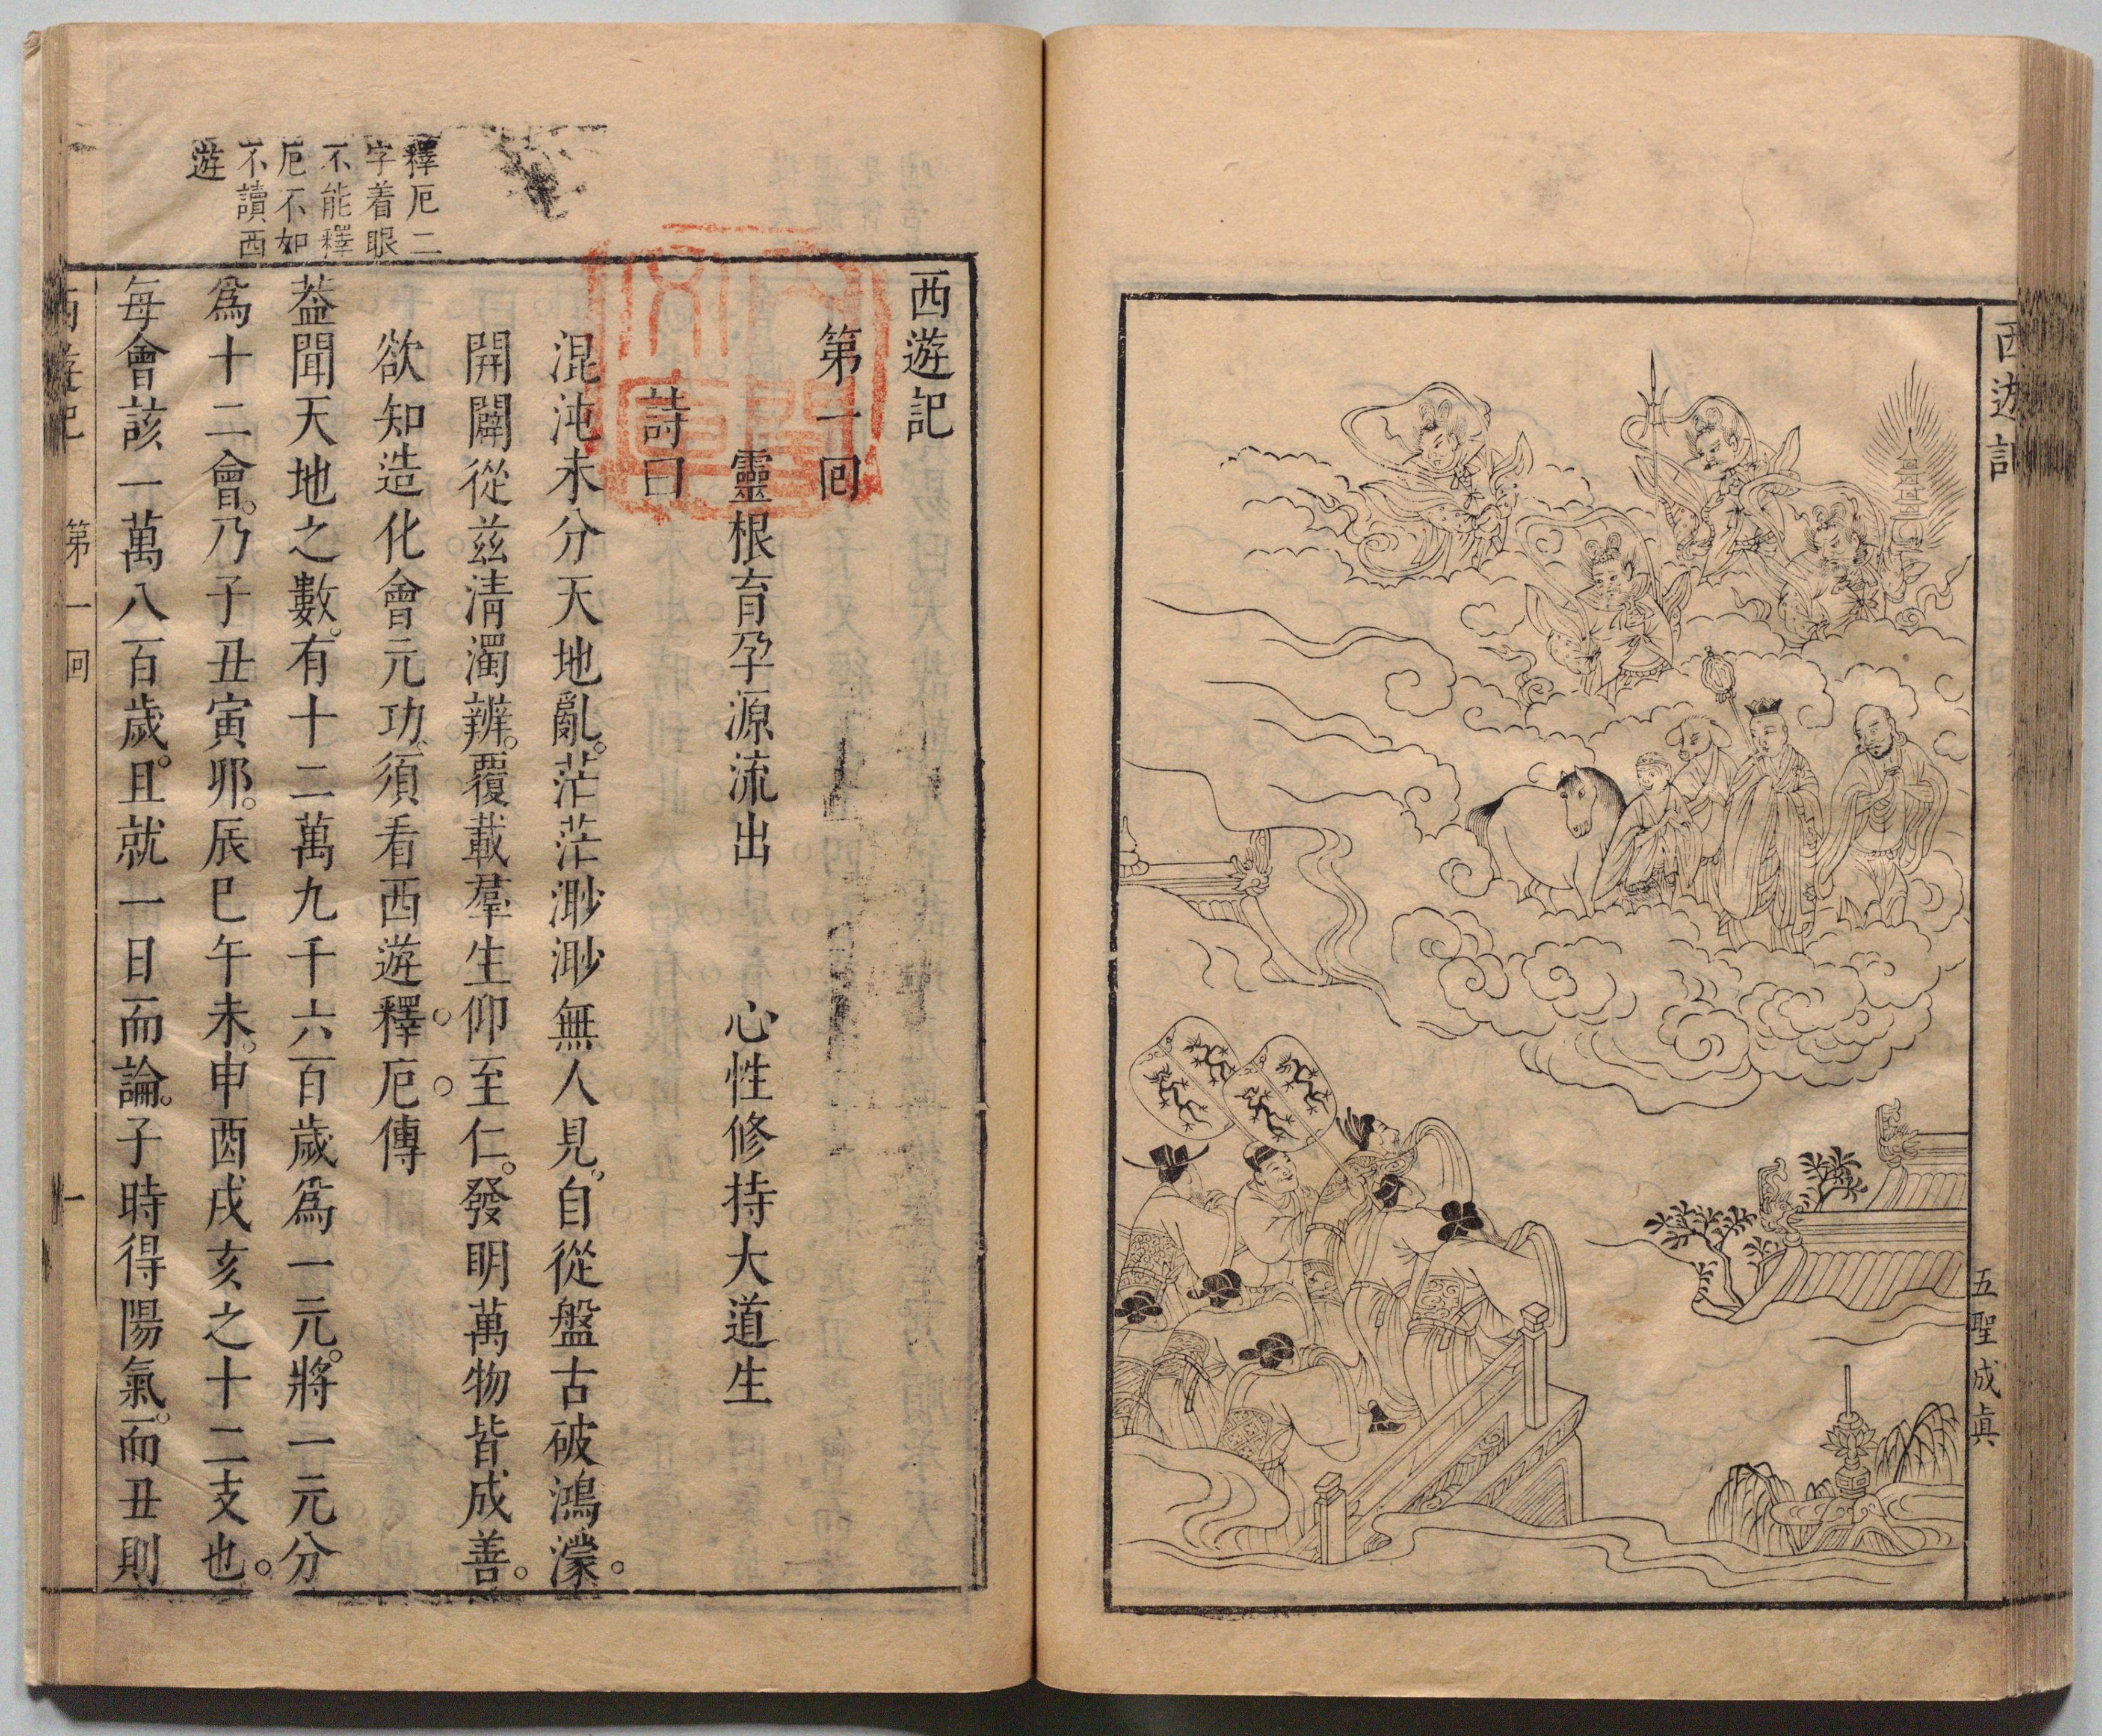 西遊記
五聖成眞
西遊記
第一回
靈根育孕源流出　心性修持大道生
詩曰
混沌未分天地亂。茫茫渺渺無人見。自從盤古破鴻濛。
開闢從茲清濁辨。覆載羣生仰至仁。發明萬物皆成善。
欲知造化會元功。須看西遊釋厄傳
葢聞天地之數。有十二萬九千六百歲爲一元。將一元分
爲十二會。乃子丑寅卯。辰巳午未。申酉戌亥之十二支也。
每會該一萬八百歲。且就一日而論。子時得陽氣。而丑則
釋厄二
字着眼
不能釋
厄不如
不讀西
遊
西遊記　第一回　一